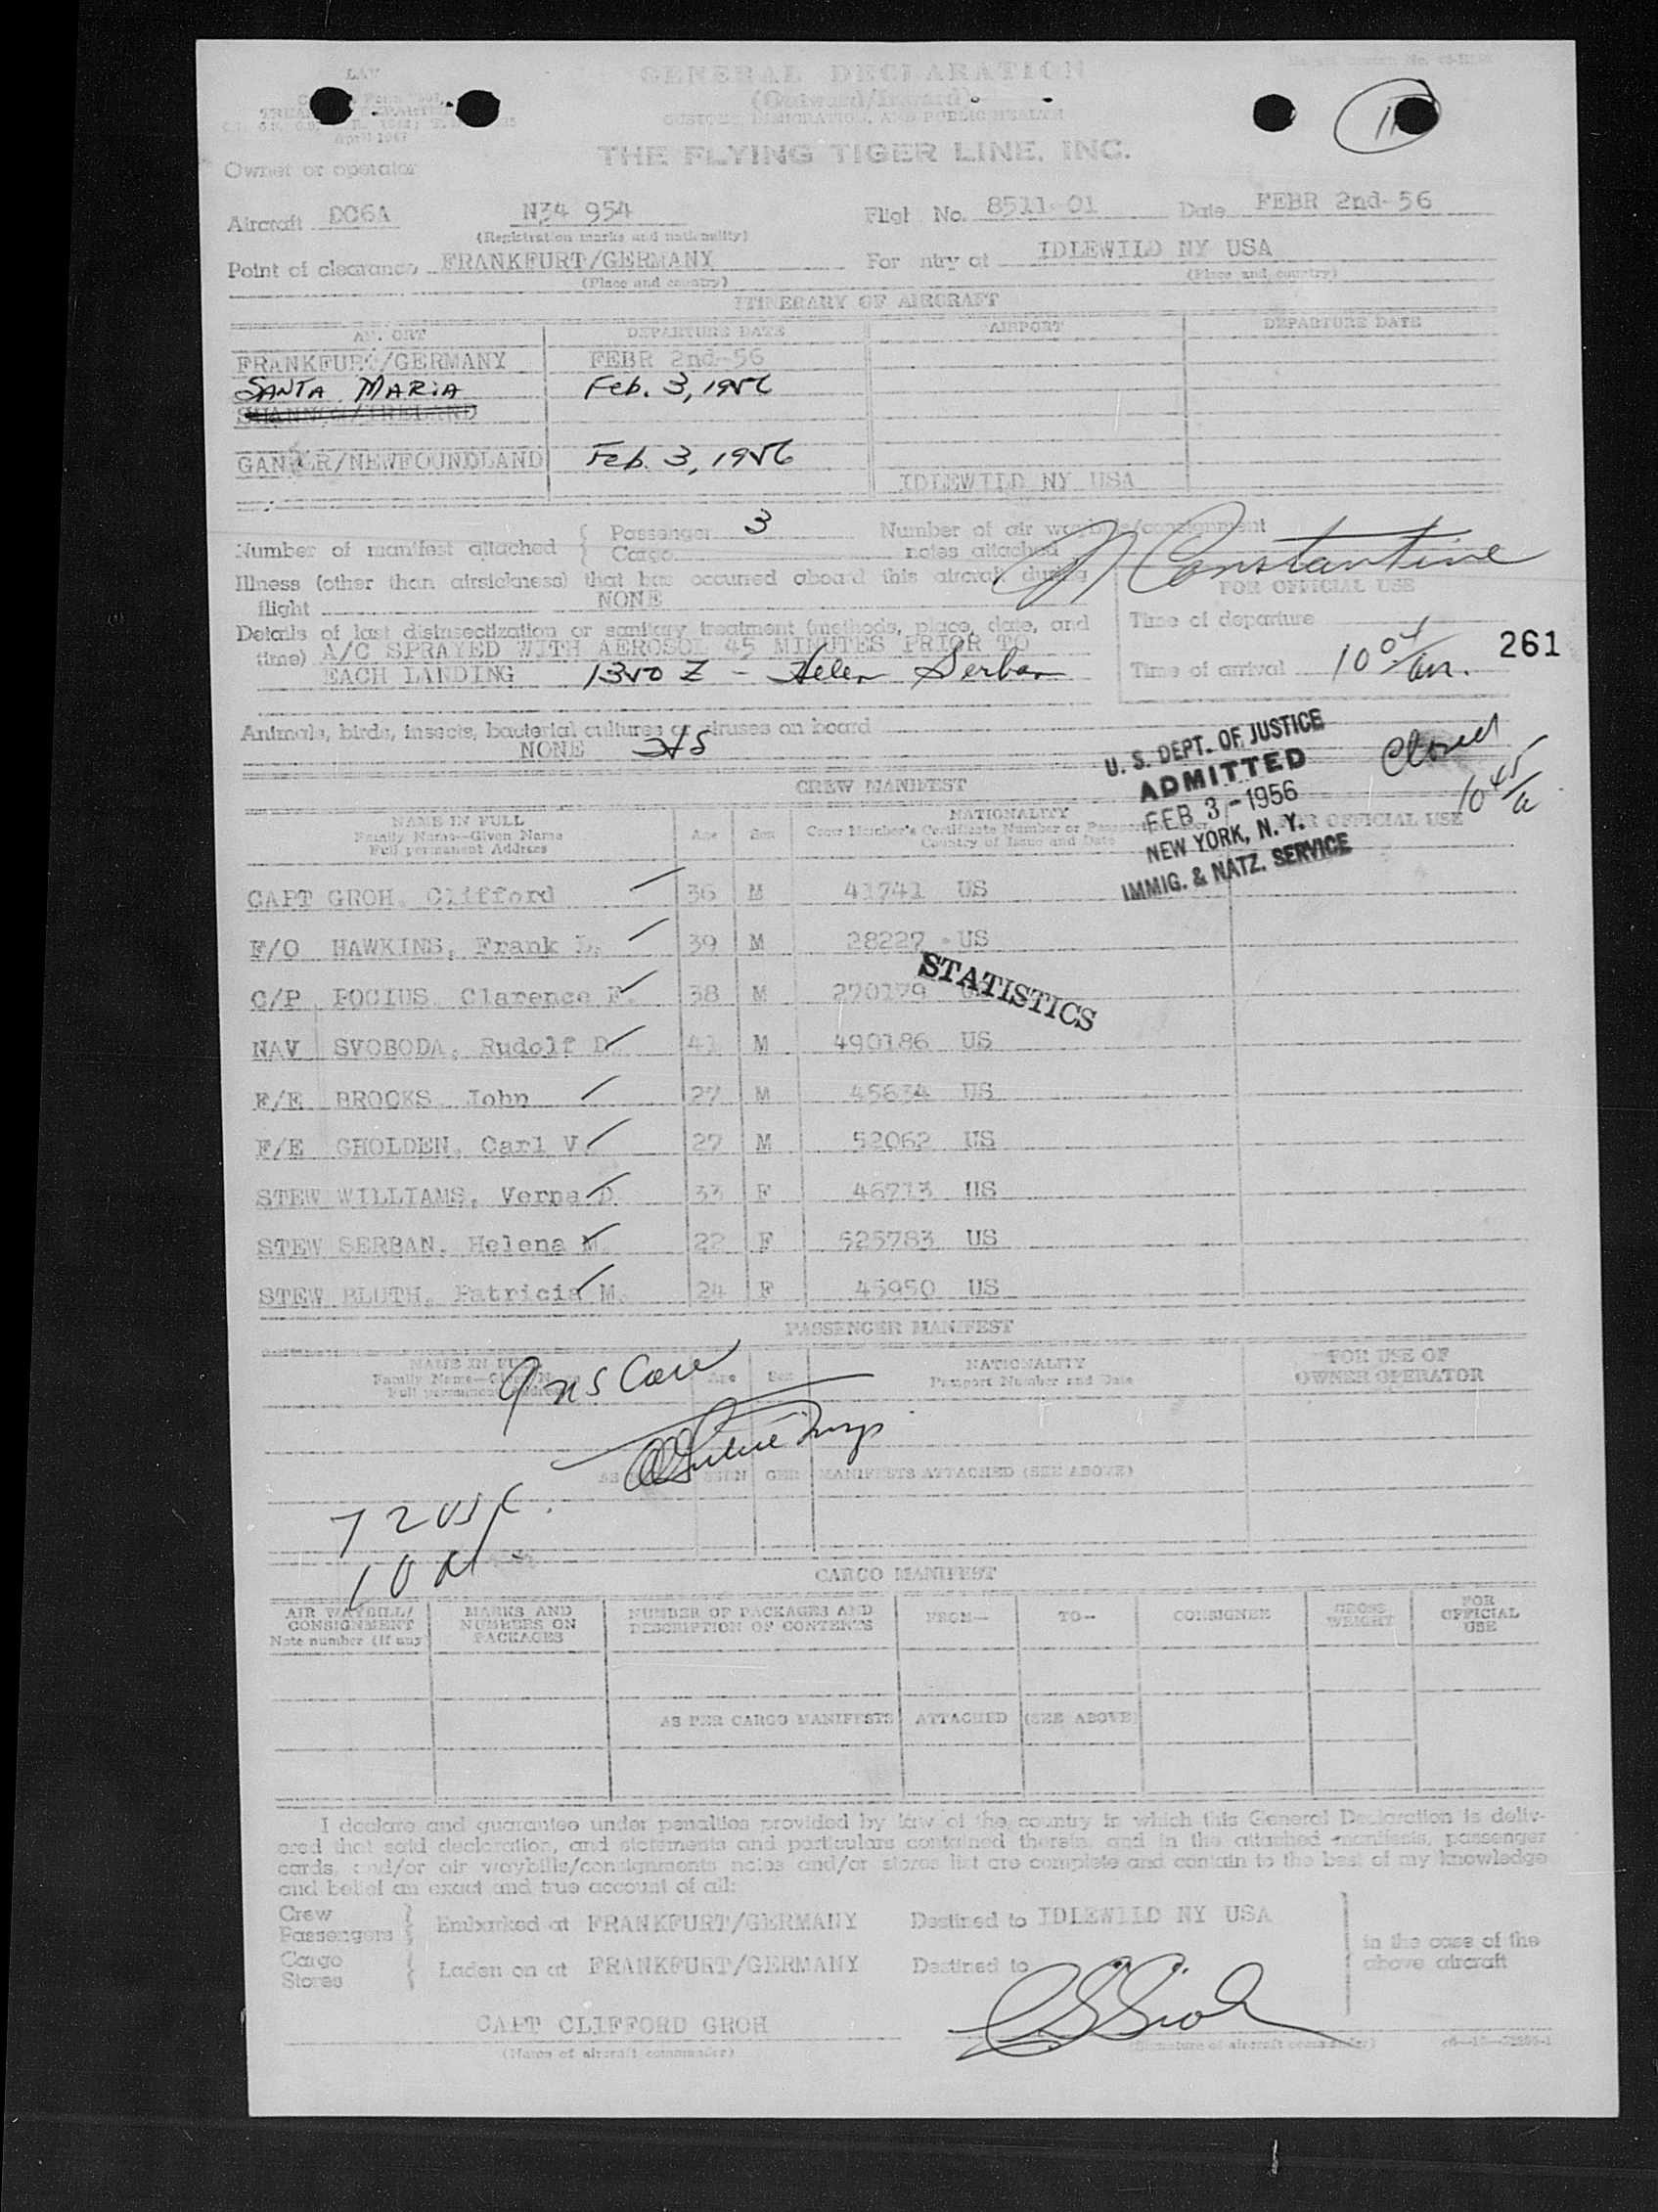 GENERAL DECLARATION
(Outward/Inward)
CUSTOMS, IMMIGRATION, AND PUBLIC HEALTH
April 1947
THE FLYING TIGER LINE, INC.
Owner or operator
Aircraft DC6A N34 954 Flight No. 8511-01 Date FEBR 2nd-56
(Registration marks and nationality)
Point of clearance FRANKFURT/GERMANY For entry at IDLEWILD NY USA
(Place and country) (Place and country)
ITINERARY OF AIRCRAFT
AIRPORT DEPARTURE DATE AIRPORT DEPARTURE DATE
FRANKFURT/GERMANY FEBR 2nd-56
SANTA MARIA Feb. 3, 1956
SHANNON/IRELAND
GANDER/NEWFOUNDLAND Feb. 3, 1956
IDLEWILD NY USA
Number of manifest attached { Passenger 3 Number of air waybills/consignment
Cargo notes attached
N Constantine
Illness (other than airsickness) that has occurred aboard this aircraft during
flight NONE
FOR OFFICIAL USE
Details of last disinsectization or sanitary treatment (methods, place, date, and
time) A/C SPRAYED WITH AEROSOL 45 MINUTES PRIOR TO
EACH LANDING 1350 Z - Helen Serban
Time of departure
Time of arrival 10 04/am.
261
Animals, birds, insects, bacterial cultures or viruses on board
NONE HS
U. S. DEPT. OF JUSTICE
ADMITTED
FEB 3 - 1956
NEW YORK, N. Y.
IMMIG. & NATZ. SERVICE
Closed
10 45/a
CREW MANIFEST
NAME IN FULL
Family Name—Given Name
Full permanent Address
Age Sex
NATIONALITY
Crew Member's Certificate Number or Passport Number
Country of Issue and Date
FOR OFFICIAL USE
CAPT GROH, Clifford 36 M 41741 US
F/O HAWKINS, Frank L. 39 M 28227 - US
C/P POCIUS, Clarence F. 38 M 270179
STATISTICS
NAV SVOBODA, Rudolf D. 41 M 490186 US
F/E BROOKS John 27 M 45634 US
F/E GHOLDEN, Carl V. 27 M 52062 US
STEW WILLIAMS, Verna D. 33 F 46713 US
STEW SERBAN, Helena M. 22 F 525783 US
STEW BLUTH, Patricia M. 24 F 45950 US
PASSENGER MANIFEST
NAME IN FULL
Family Name—Given Name
Full permanent Address
Age Sex
NATIONALITY
Passport Number and Date
FOR USE OF
OWNER OPERATOR
MANIFESTS ATTACHED (SEE ABOVE)
72 USC.
10 A
CARGO MANIFEST
AIR WAYBILL/
CONSIGNMENT
Note number (if any
MARKS AND
NUMBERS ON
PACKAGES
NUMBER OF PACKAGES AND
DESCRIPTION OF CONTENTS
FROM— TO— CONSIGNEE
GROSS
WEIGHT
FOR
OFFICIAL
USE
AS PER CARGO MANIFESTS ATTACHED (SEE ABOVE)
I declare and guarantee under penalties provided by law of the country in which this General Declaration is deliv-
ered that said declaration, and statements and particulars contained therein, and in the attached manifests, passenger
cards, and/or air waybills/consignments notes and/or stores list are complete and contain to the best of my knowledge
and belief an exact and true account of all:
Crew
Passengers } Embarked at FRANKFURT/GERMANY Destined to IDLEWILD NY USA
Cargo
Stores { Laden on at FRANKFURT/GERMANY Destined to
in the case of the
above aircraft
CAPT CLIFFORD GROH
(Name of aircraft commander) (Signature of aircraft commander)